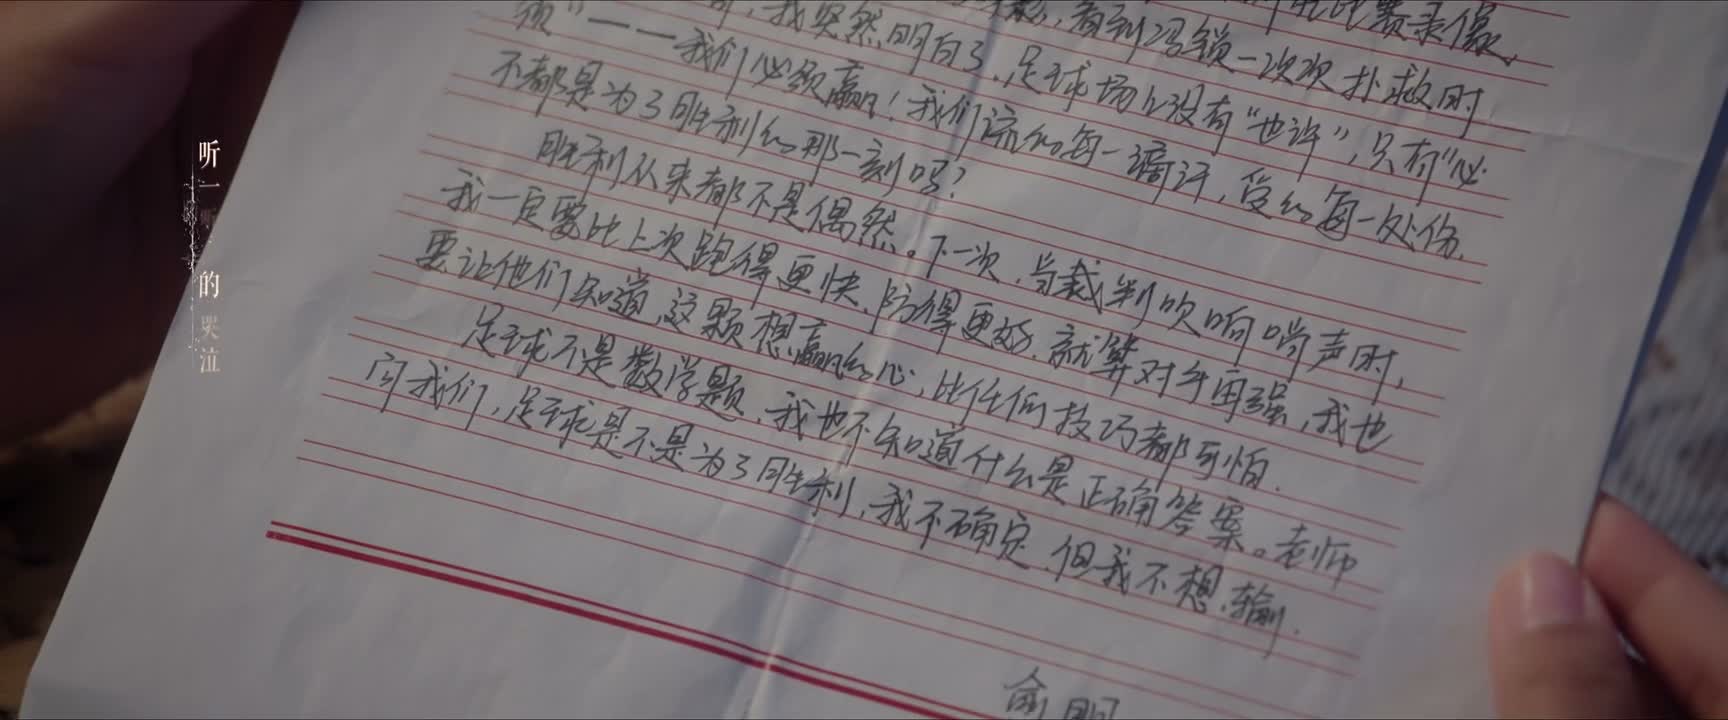 听一听 的哭泣
看到冯锁一次次扑救时
我突然明白了，足球场上没有“也许”，只有“必
须”——我们必须赢！我们流的每一滴汗，受的每一处伤，
不都是为了胜利的那一刻吗？
胜利从来都不是偶然。下一次，当裁判吹响哨声时，
我一定要比上次跑得更快，防得更好，就算对手再强，我也
要让他们知道，这颗想赢的心，比任何技巧都可怕。
足球不是数学题，我也不知道什么是正确答案。老师
问我们，足球是不是为了胜利，我不确定，但我不想输。
俞明